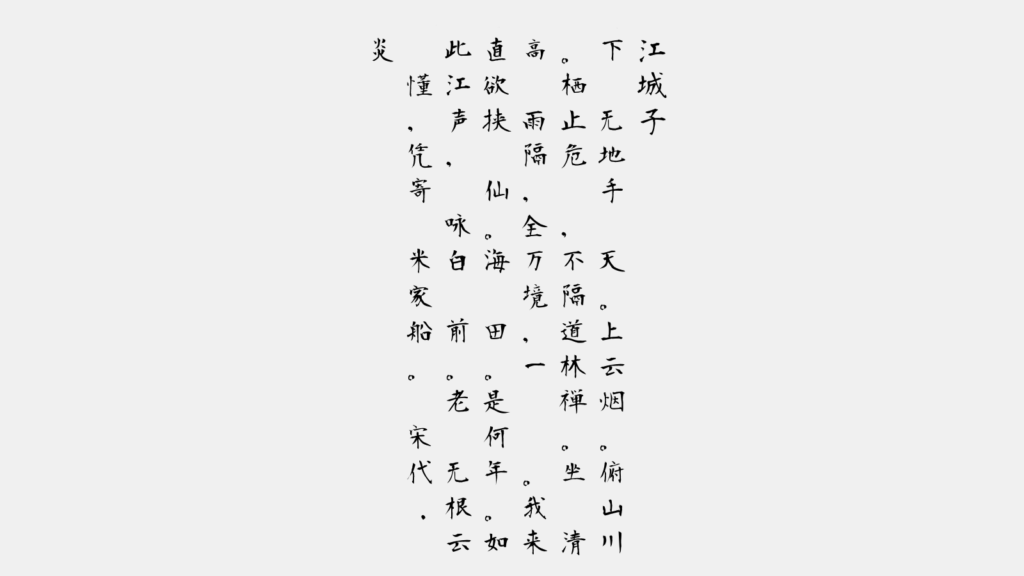 江城子
下无地手天。上云烟。俯山川
。栖止危，不隔道林禅。坐清
高雨隔，全万境，一。我来
直欲挟仙。海田。是何年。如
此江声，咏白前。老无根云
懂，凭寄米家船。宋代·
炎